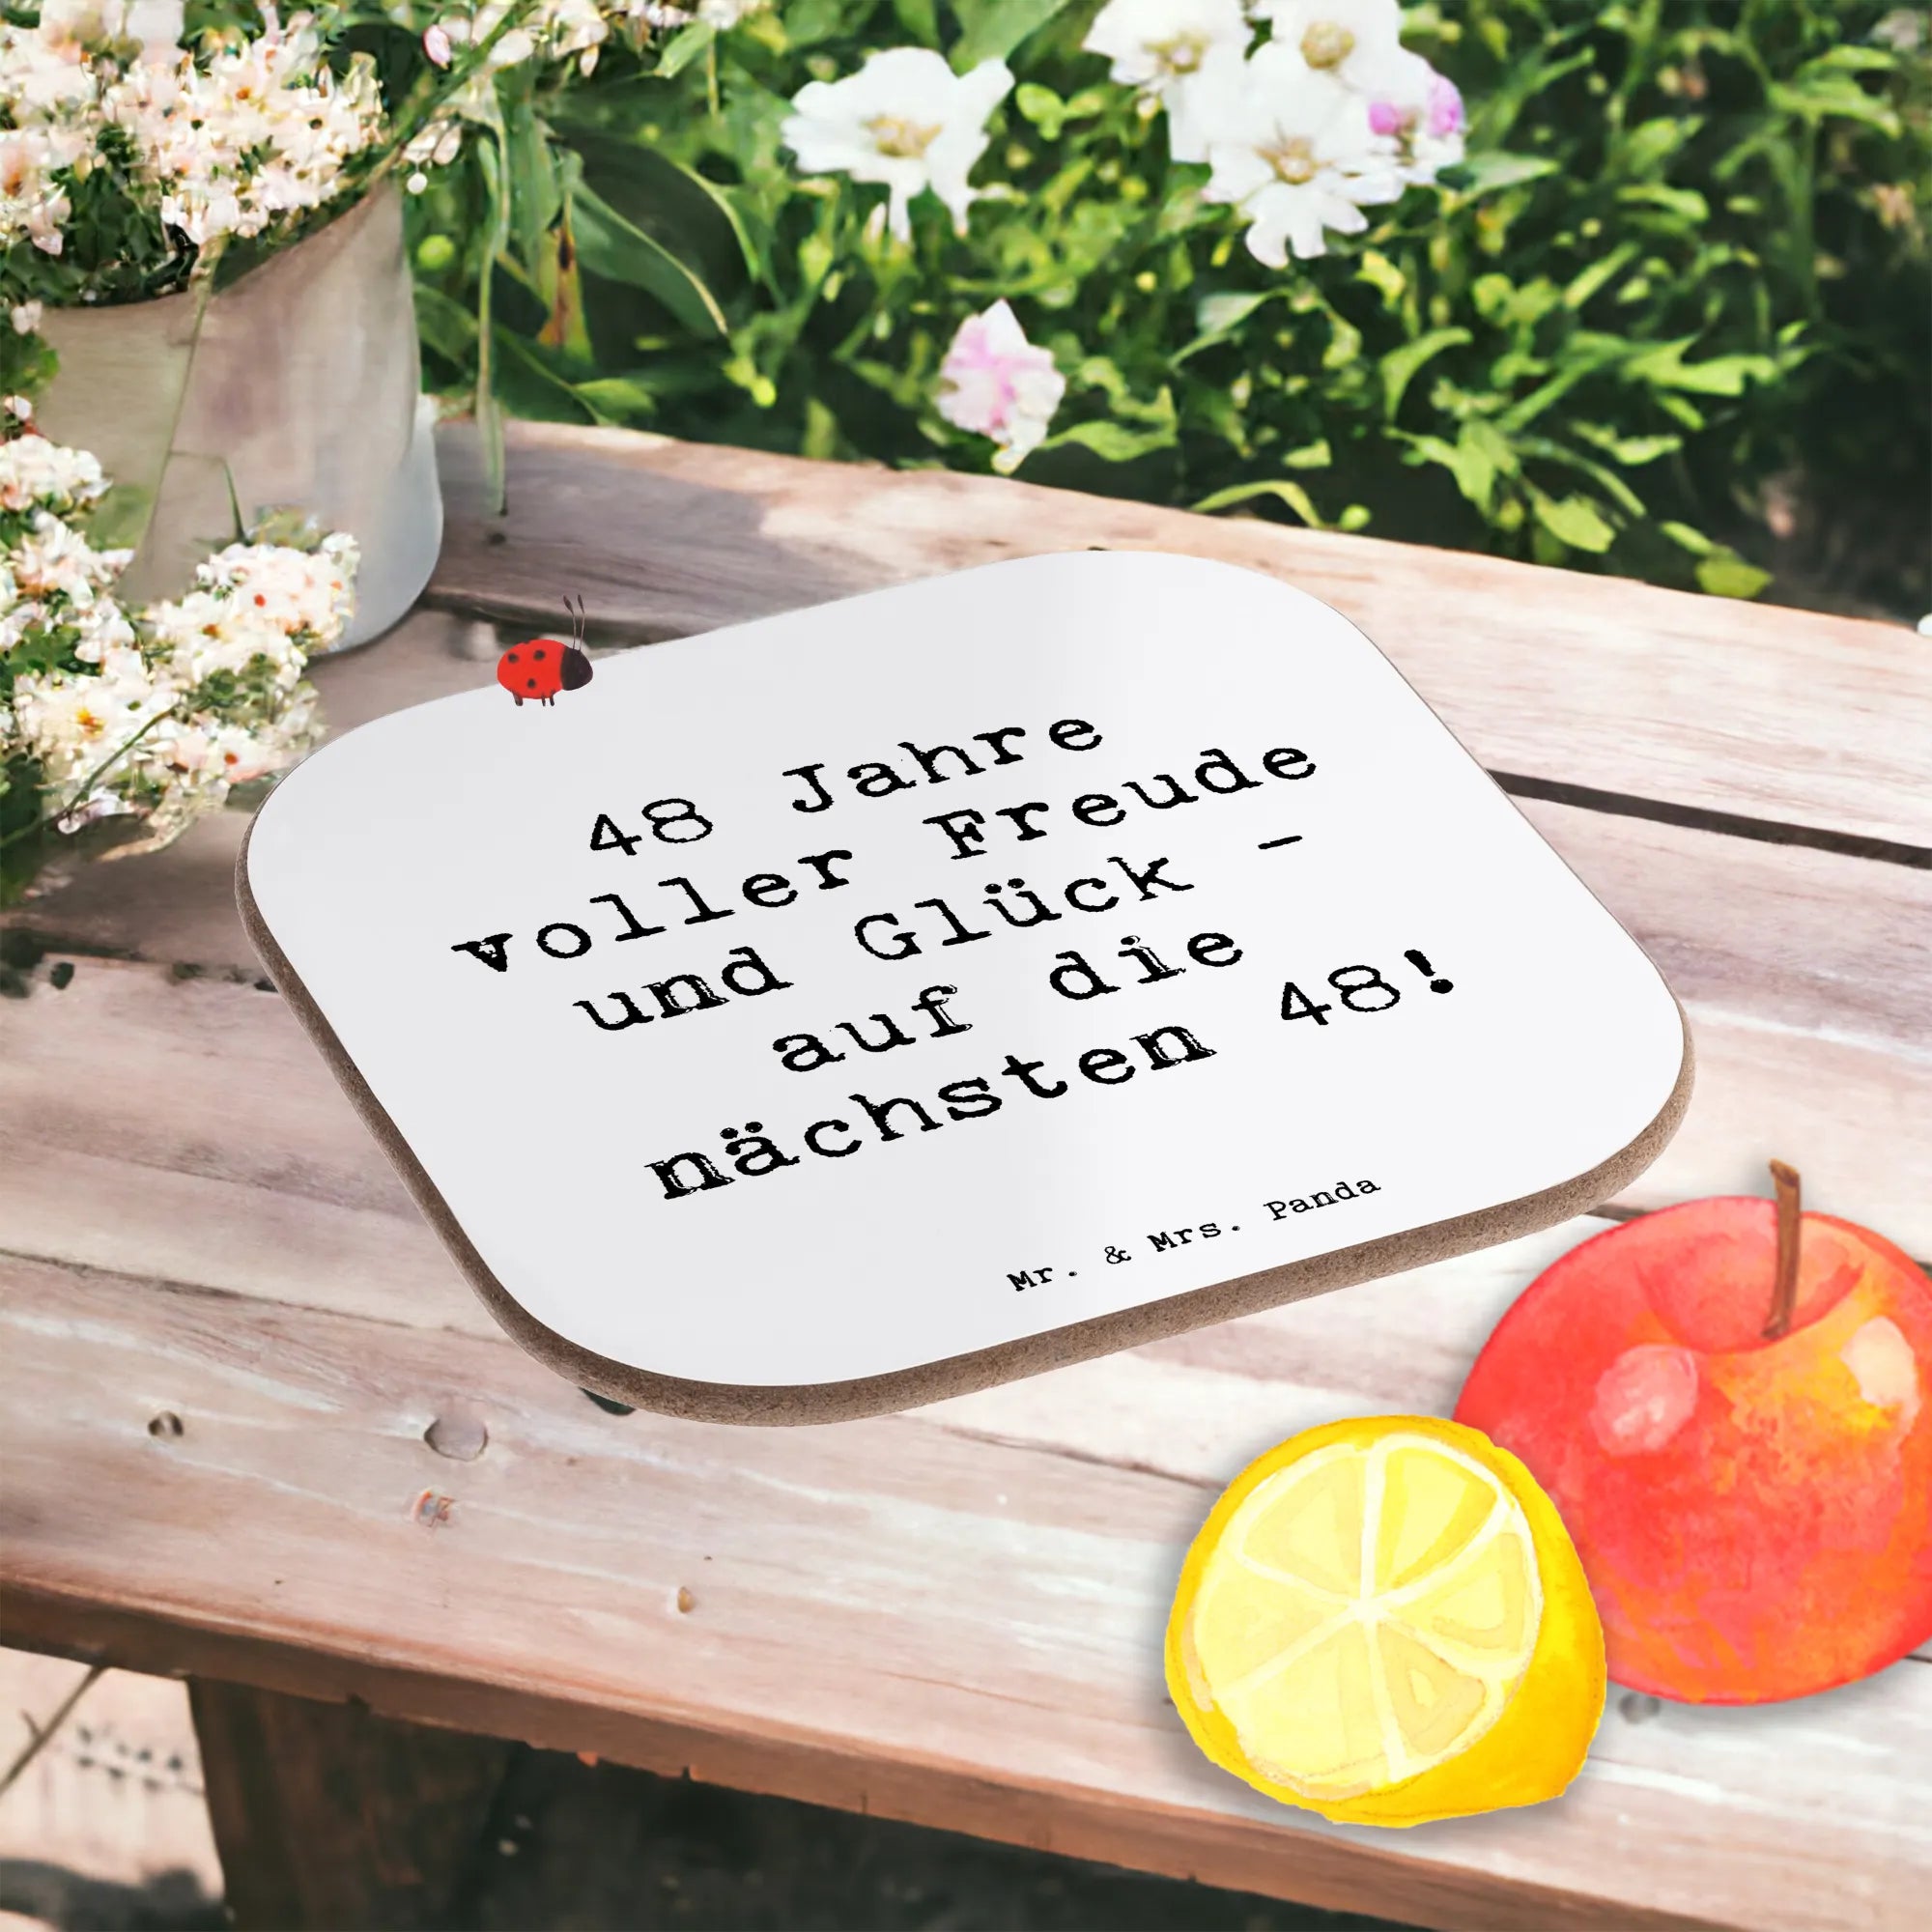 48 Jahre
voller Freude
und Glück -
auf die
nächsten 48!
Mr. & Mrs. Panda